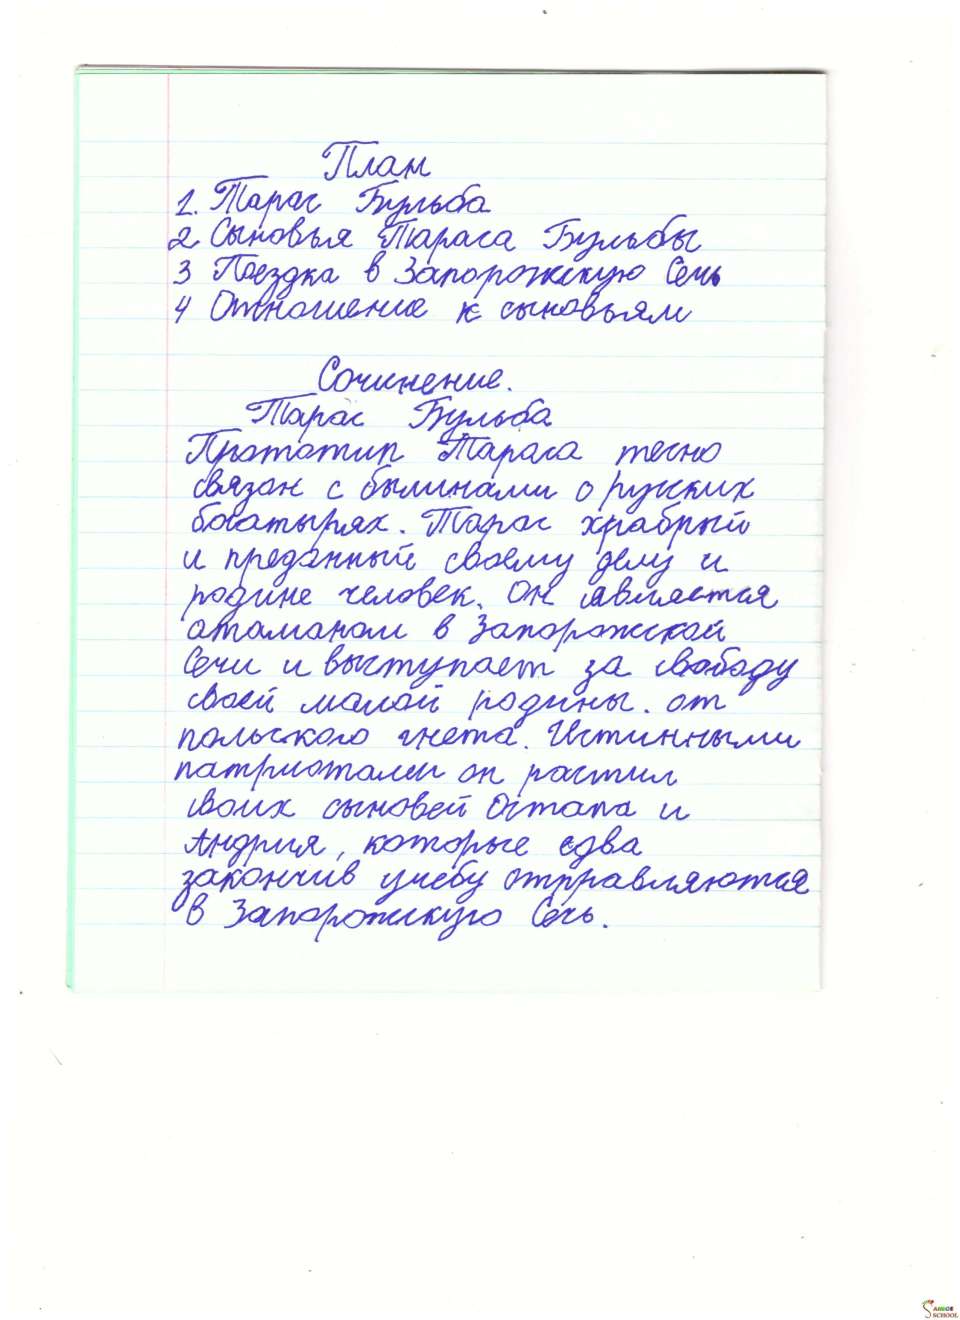 План
1. Тарас Бульба
2 Сыновья Тараса Бульбы
3 Поездка в Запорожскую Сечь
4 Отношение к сыновьям
Сочинение.
Тарас Бульба
Прототип Тараса тесно
связан с былинами о руских
богатырях. Тарас храбрый
и преданный своему делу и
родине человек. Он является
атаманом в Запорожской
Сечи и выступает за свободу
своей малой родины. от
польского гнета. Истинными
патриотами он растил
своих сыновей Остапа и
Андрия, которые едва
закончив учебу отправляются
в Запорожскую Сечь.
SCHOOL